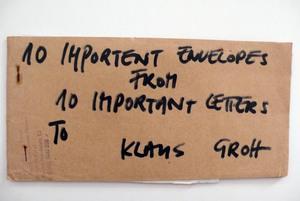 10 IMPORTENT ENVELOPES
FROM
10 IMPORTANT LETTERS
TO
KLAUS GROH